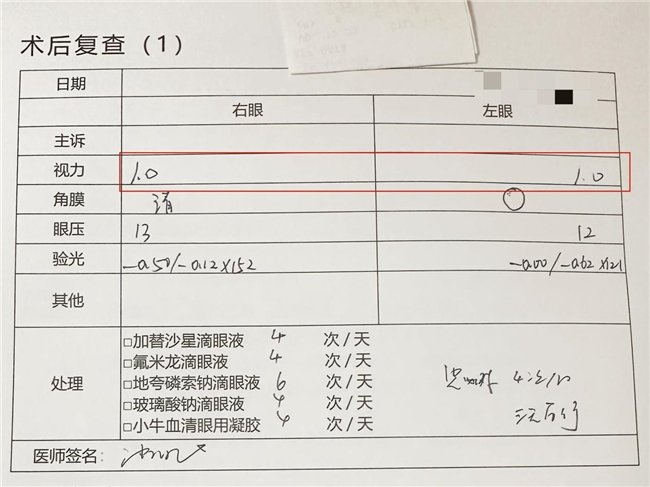 术后复查（1）
日期
右眼 左眼
主诉
视力 1.0 1.0
角膜 清
眼压 13 12
验光 -0.50/-0.12×152 -0.00/-0.62×121
其他
处理
□加替沙星滴眼液 4 次/天
□氟米龙滴眼液 4 次/天
□地夸磷索钠滴眼液 6 次/天
□玻璃酸钠滴眼液 4 次/天
□小牛血清眼用凝胶 4 次/天
医师签名：